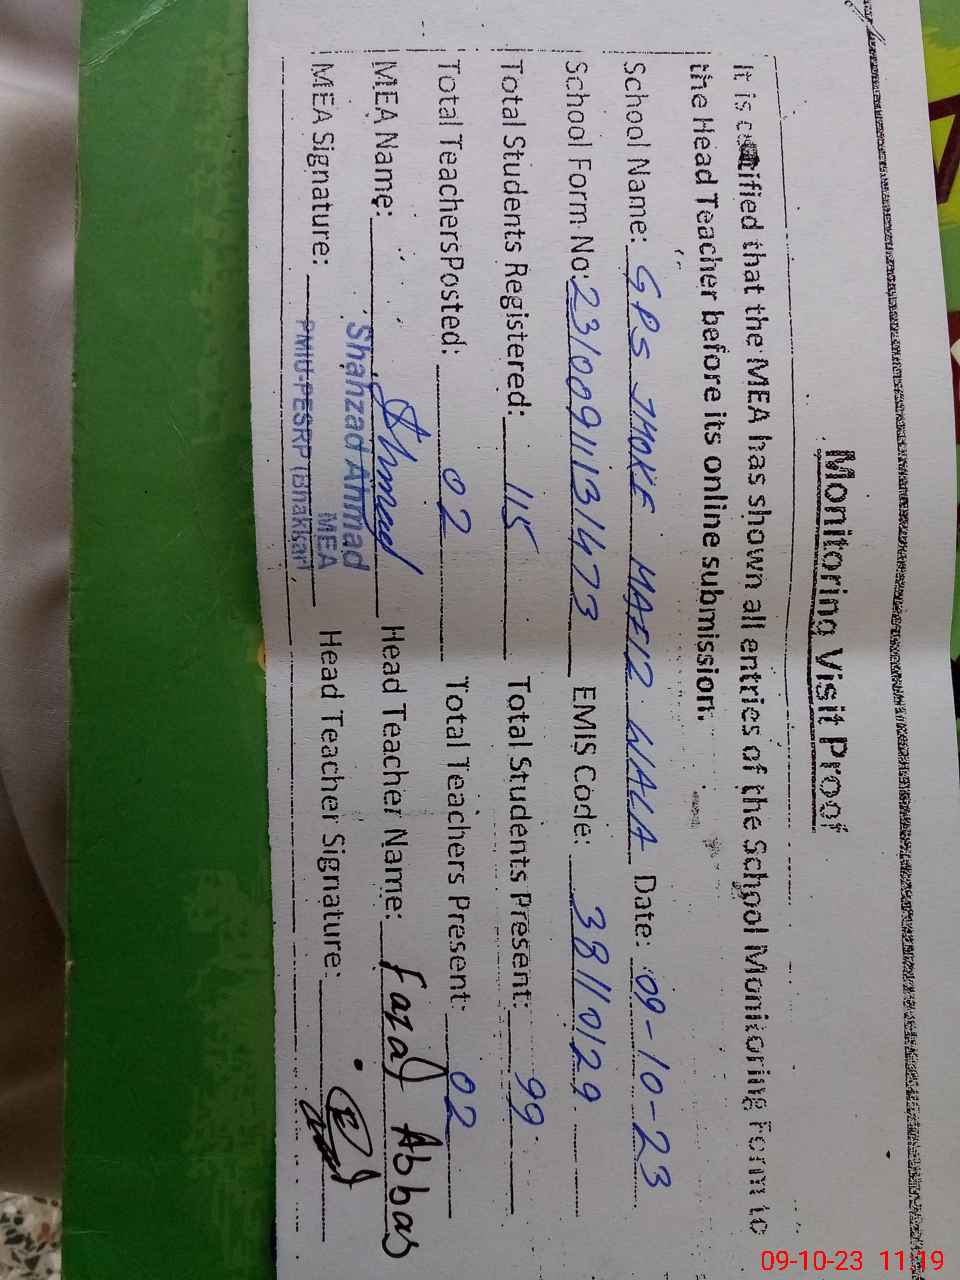 Monitoring Visit Proof
It is certified that the MEA has shown all entries of the School Monitoring Form to
the Head Teacher before its online submission.
School Name: GPS JHOKE HAFIZ WALA Date: 09-10-23
School Form No: 231009111311473 EMIS Code: 38110129
Total Students Registered: 115 Total Students Present: 99
Total Teachers Posted: 02 Total Teachers Present: 02
MEA Name: Head Teacher Name: Fazal Abbas
Ahmad
Shahzad Ahmad
MEA
MEA Signature: Head Teacher Signature:
PMIU-PESRP (Bhakkar)
09-10-23 11:19